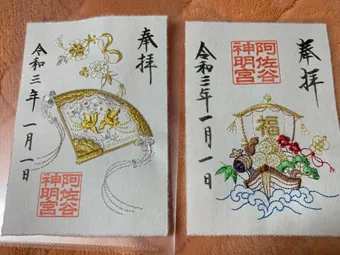 奉拝
令和三年 一月一日
阿佐谷
神明宮
奉拝
阿佐谷
神明宮
令和三年一月一日
福